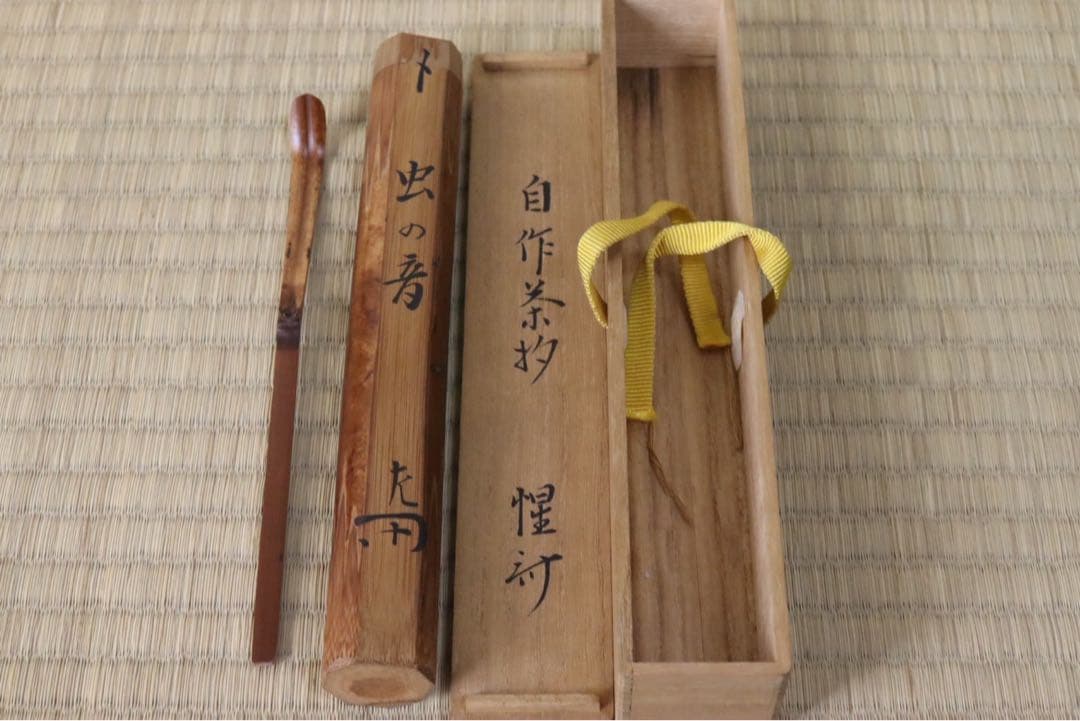 自作茶杓 惺斎
〆 虫の音 左